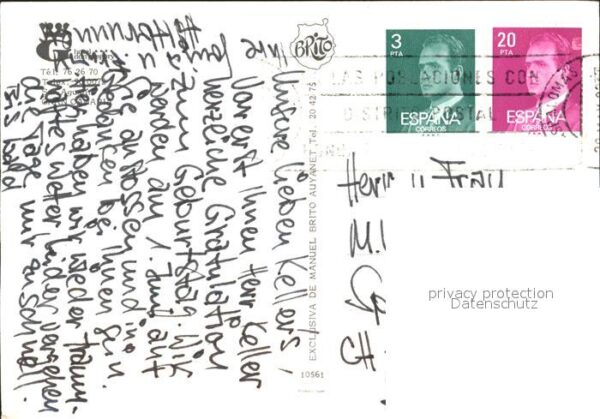 Tel. 76 26 70
BRITO
3
PTA
20
PTA
LAS POBLACIONES CON
DISTRI POSTAL
ESPAÑA
CORREOS
ESPAÑA
CORREOS
Unsere lieben Keller's,
Vorerst Ihnen Herr Keller
herzliche Gratulation
zum Geburtstag. Wir
werden am 1. Juni auf
Sie anstossen und in
Gedanken bei Ihnen sein.
haben wir wieder traum-
leider vergehen
die Tage nur zu schnell.
Bis bald
Ihre
u.
Hermann
EXCLUSIVA DE MANUEL BRITO AUYANET Tel. 20 42 75
10561
Herr u Frau
M.
CH
privacy protection
Datenschutz